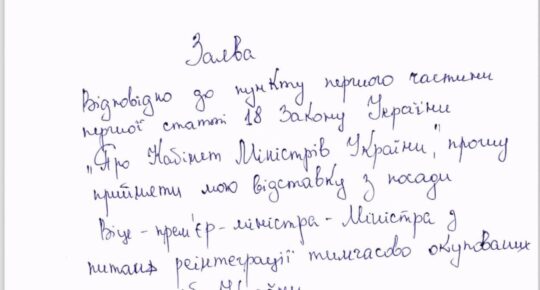 Заява
Відповідно до пункту першого частини
першої статті 18 Закону України
„Про Кабінет Міністрів України", прошу
прийняти мою відставку з посади
Віце-прем'єр-міністра - Міністра з
питань реінтеграції тимчасово окупованих
України